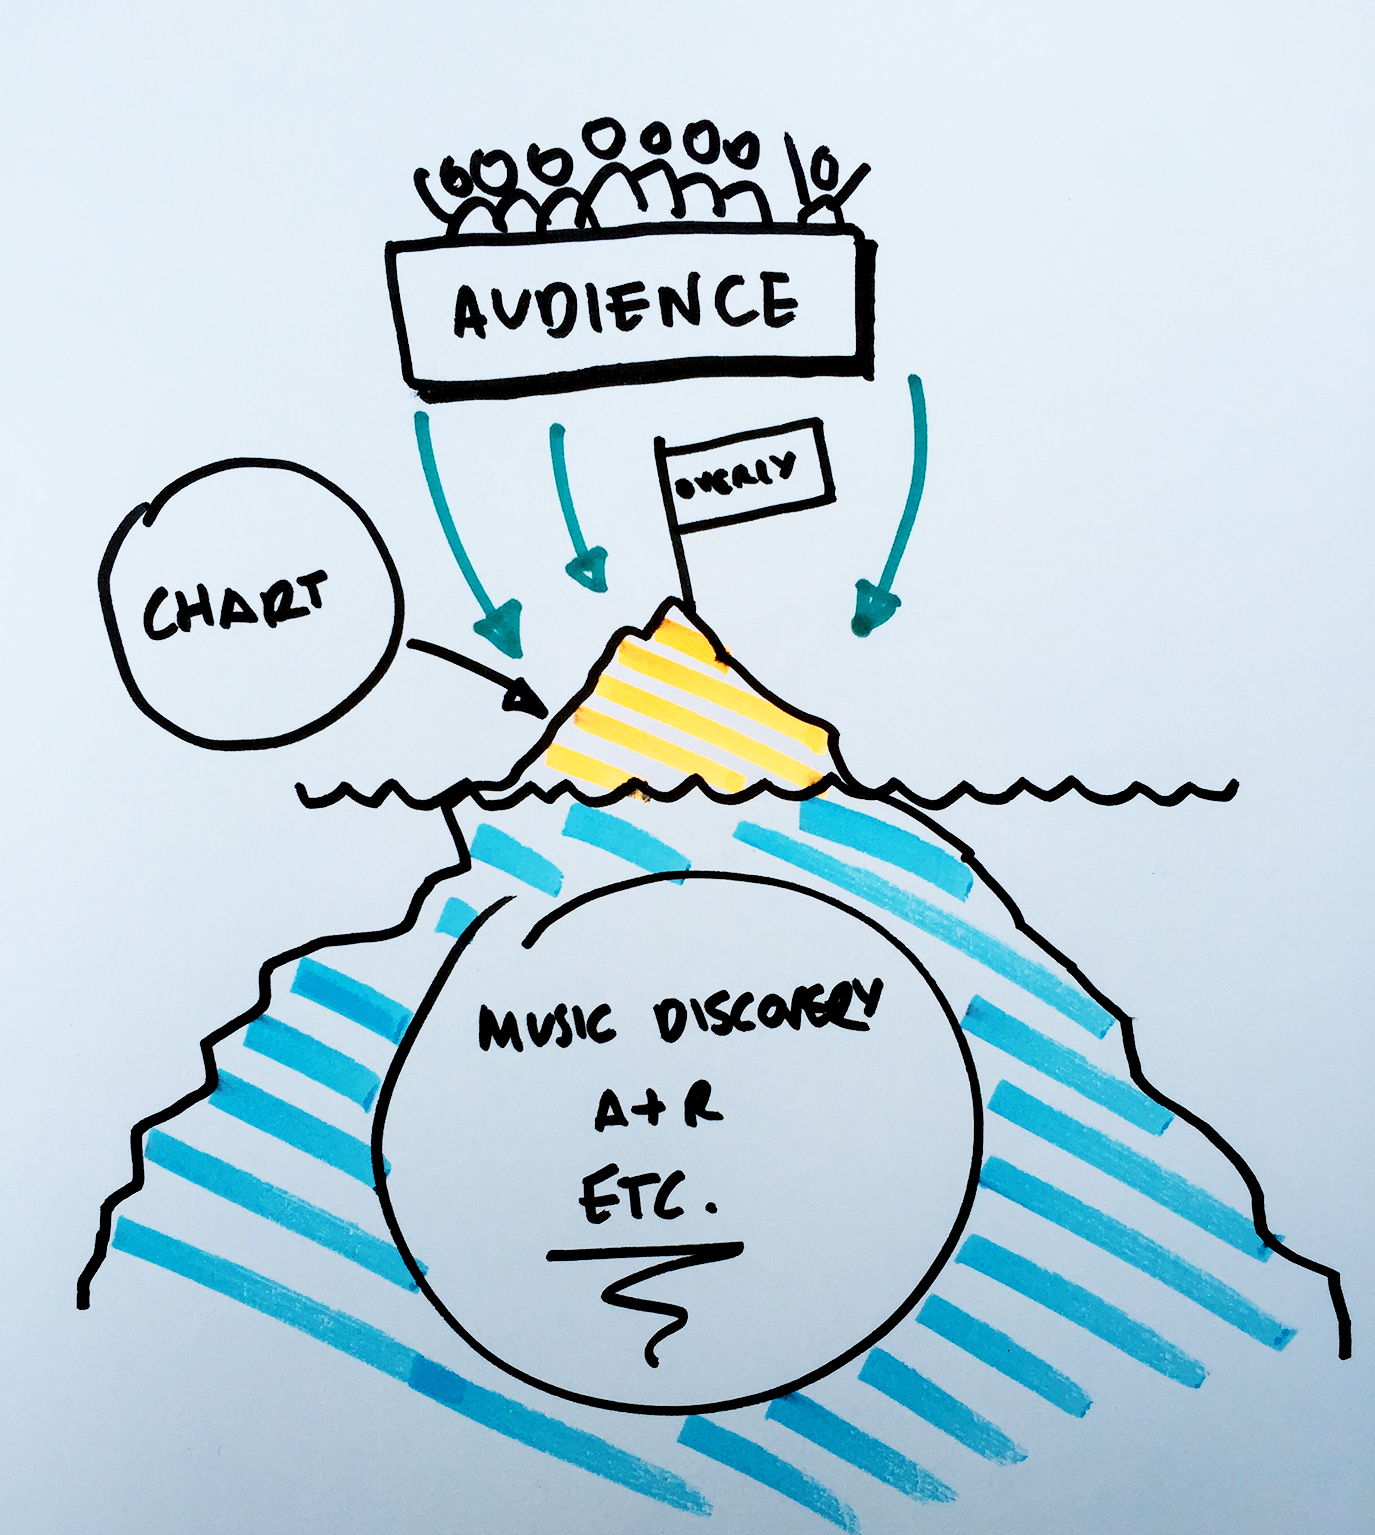 AUDIENCE
OVERLY
CHART
MUSIC DISCOVERY
A+R
ETC.